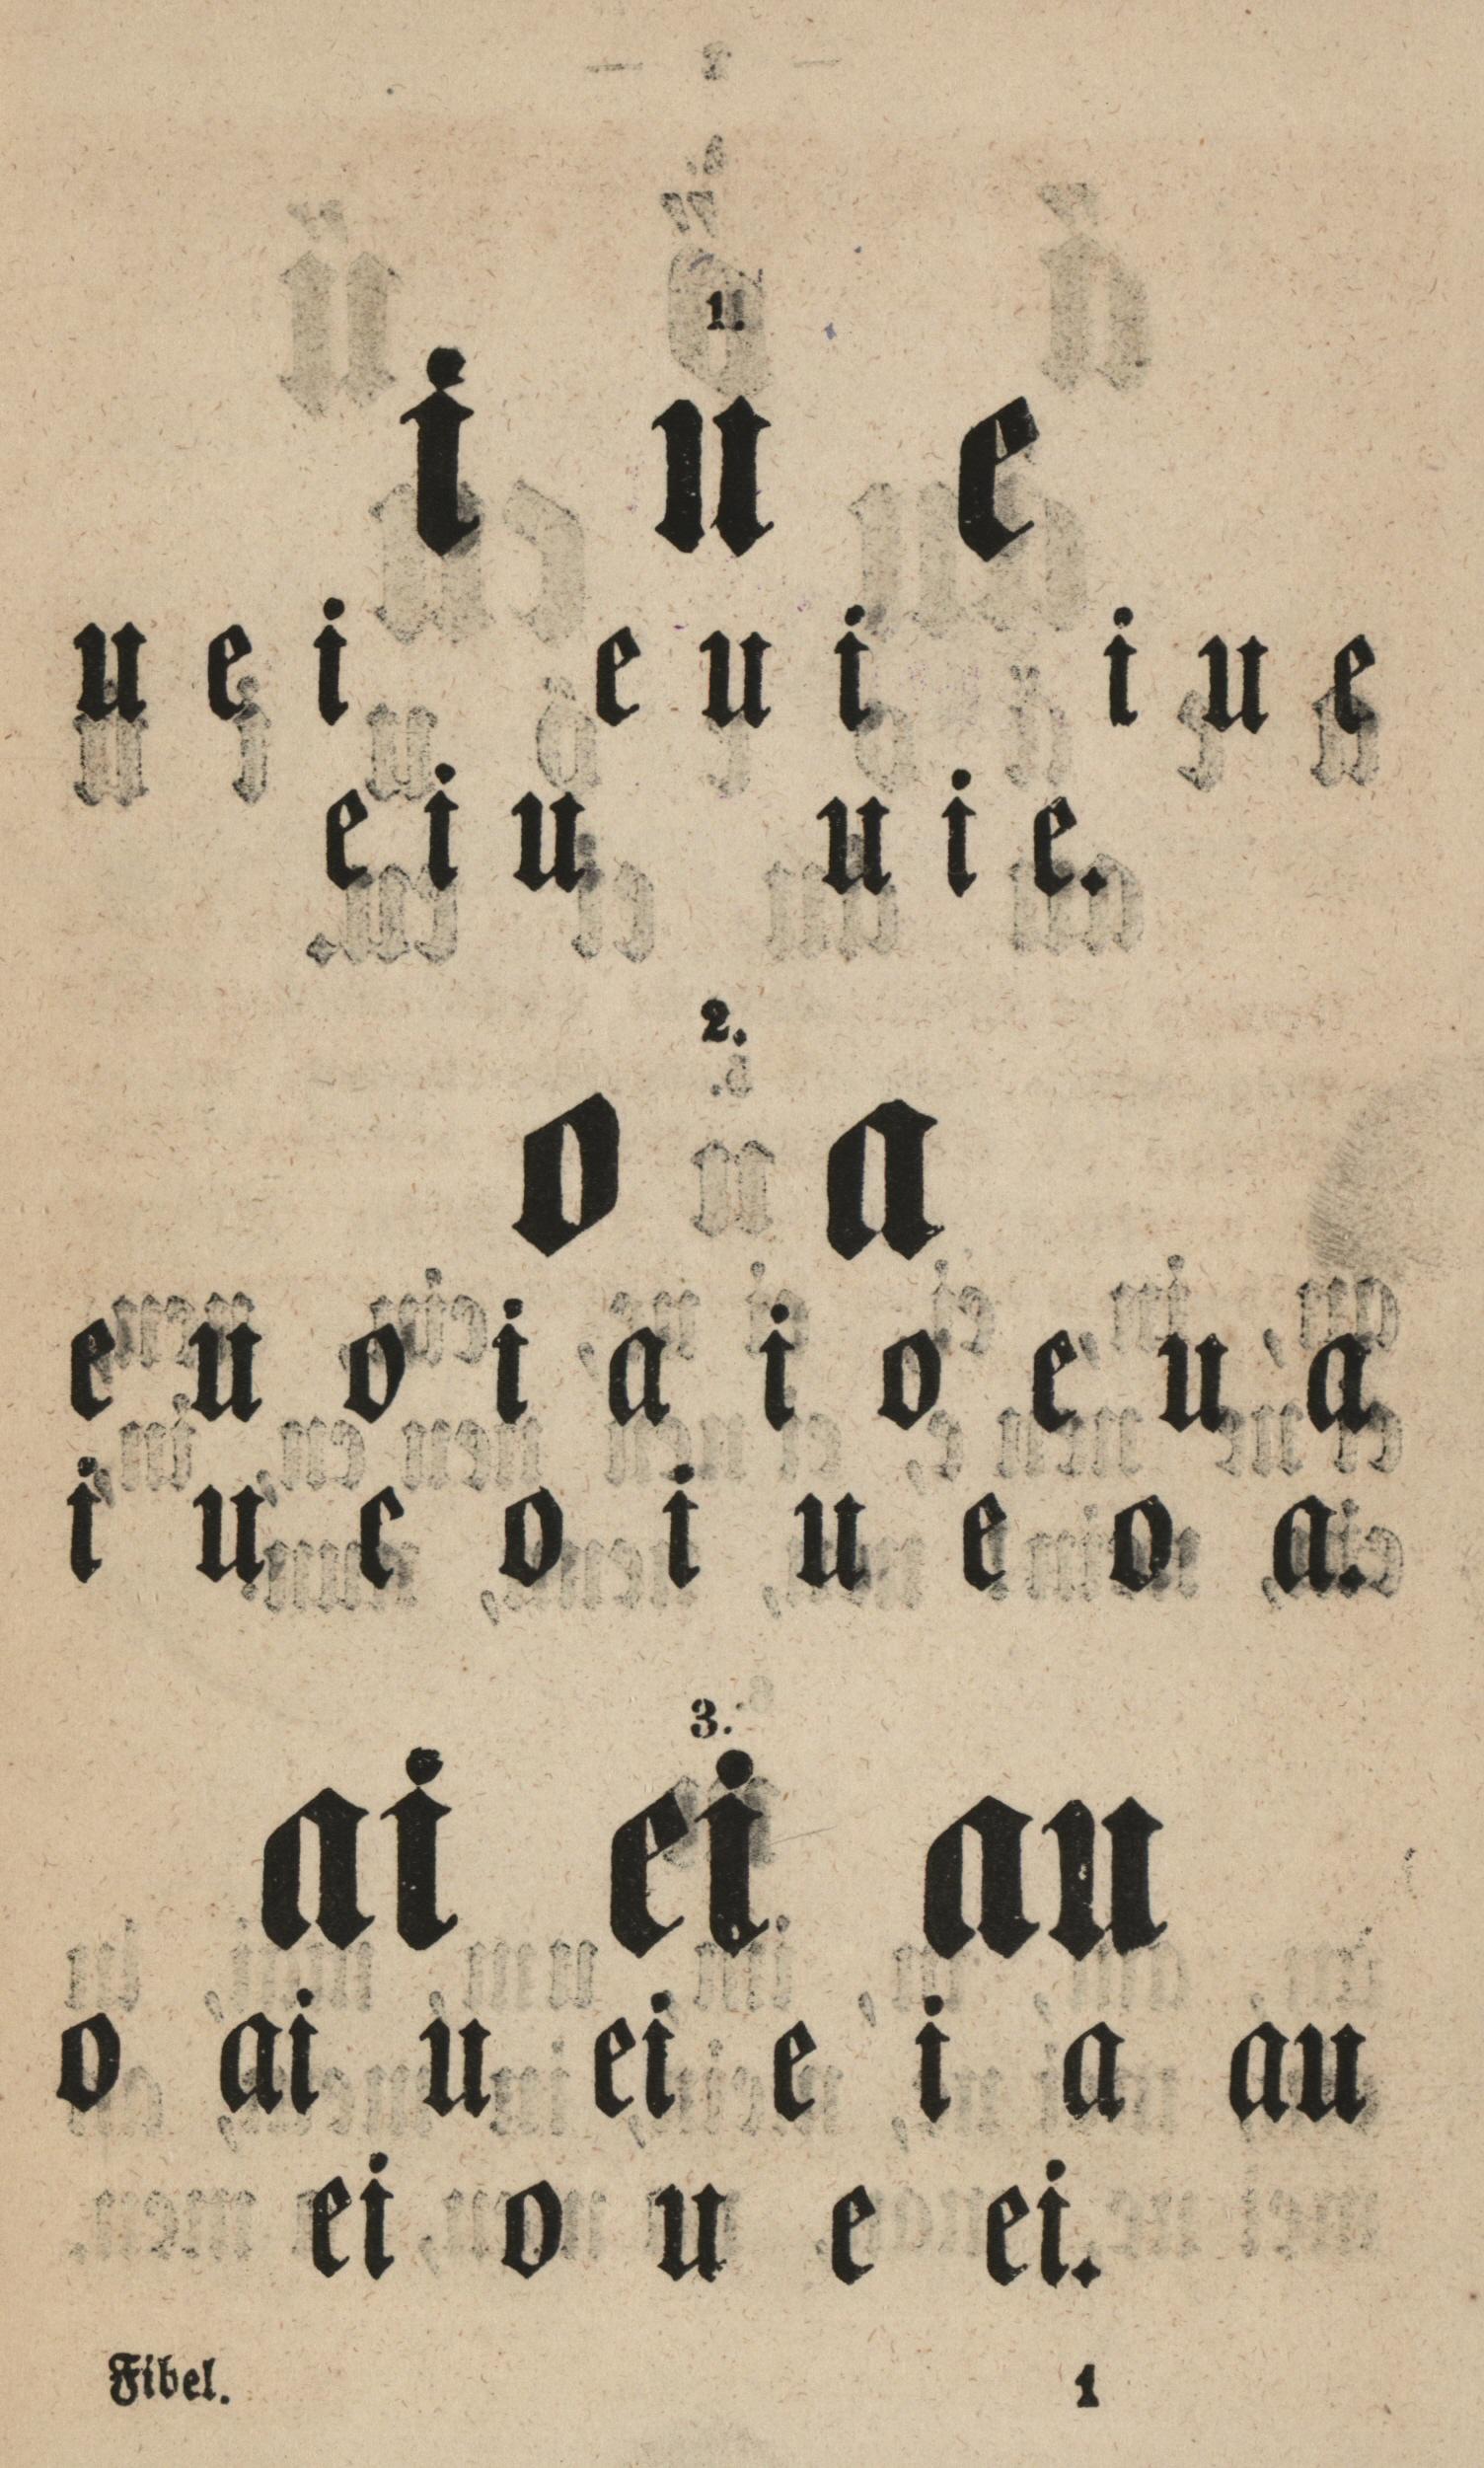 1.
i u e
u e i e u i i u e
e i u u i e.
2.
o a
e u o i a i o e u a
i u e o i u e o a.
3.
ai ei au
o ai u ei e i a au
ei o u e ei.
Fibel. 1